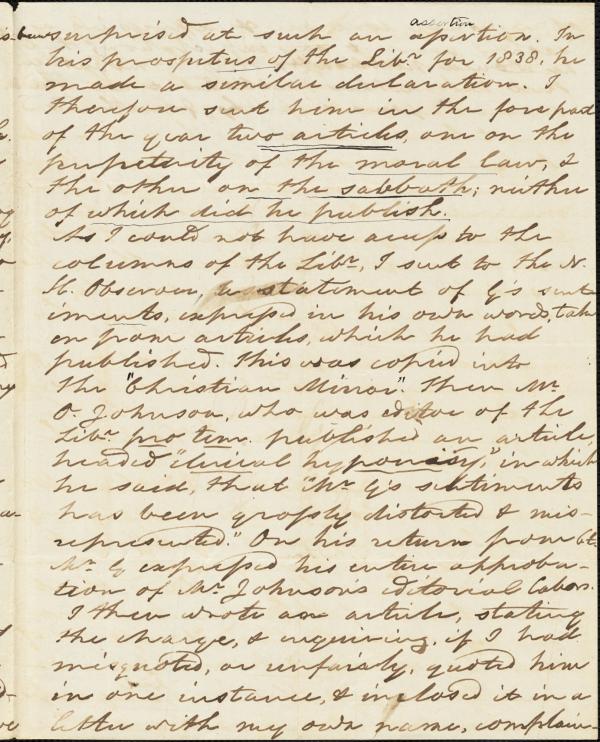 assertion
surprised at such an assertion. In
his prospectus of the Libr. for 1838, he
made a similar declaration. I
therefore sent him in the fore part
of the year two articles, one on the
perpetuity of the moral law, &
the other on the sabbath; neither
of which did he publish.
As I could not have access to the
columns of the Libr, I sent to the N.
H. Observer, a statement of G's sent
iments, expressed in his own words, tak
en from articles, which he had
published. This was copied into
the "Christian Mirror". Then Mr.
O. Johnson, who was editor of the
Libr. pro tem. published an article,
headed "clerical hypocrisy," in which
he said, that "Mr G's sentiments
has been grossly distorted & mis-
represented." On his return from Ct.
Mr. G expressed his entire approba-
tion of Mr. Johnson's editorial labors.
I then wrote an article, stating
the charge, & enquiring, if I had
misquoted, or unfairly, quoted him
in one instance, & inclosed it in a
letter with my own name, complain-